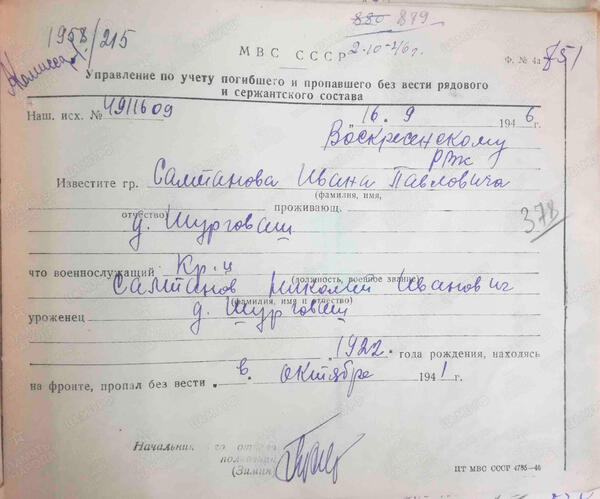 880 899
1958/215
МВС СССР 2-10-46г.
Ф. № 4а 751
Управление по учету погибшего и пропавшего без вести рядового
и сержантского состава
Наш. исх. № 4911609 „16. 9 1946г.
Воскресенскому
РВк
Известите гр. Салтанова Ивана Павловича
(фамилия, имя,
отчество) проживающ.
д. Шурговаш
378
что военнослужащий Кр-ц
(должность, военное звание)
Салтанов Николай Иванович
(фамилия, имя и отчество)
уроженец д. Шурговаш
1922. года рождения, находясь
на фронте, пропал без вести в октябре 1941г.
Начальник го отдела
(Зимин)
ЦТ МВС СССР 4785—46